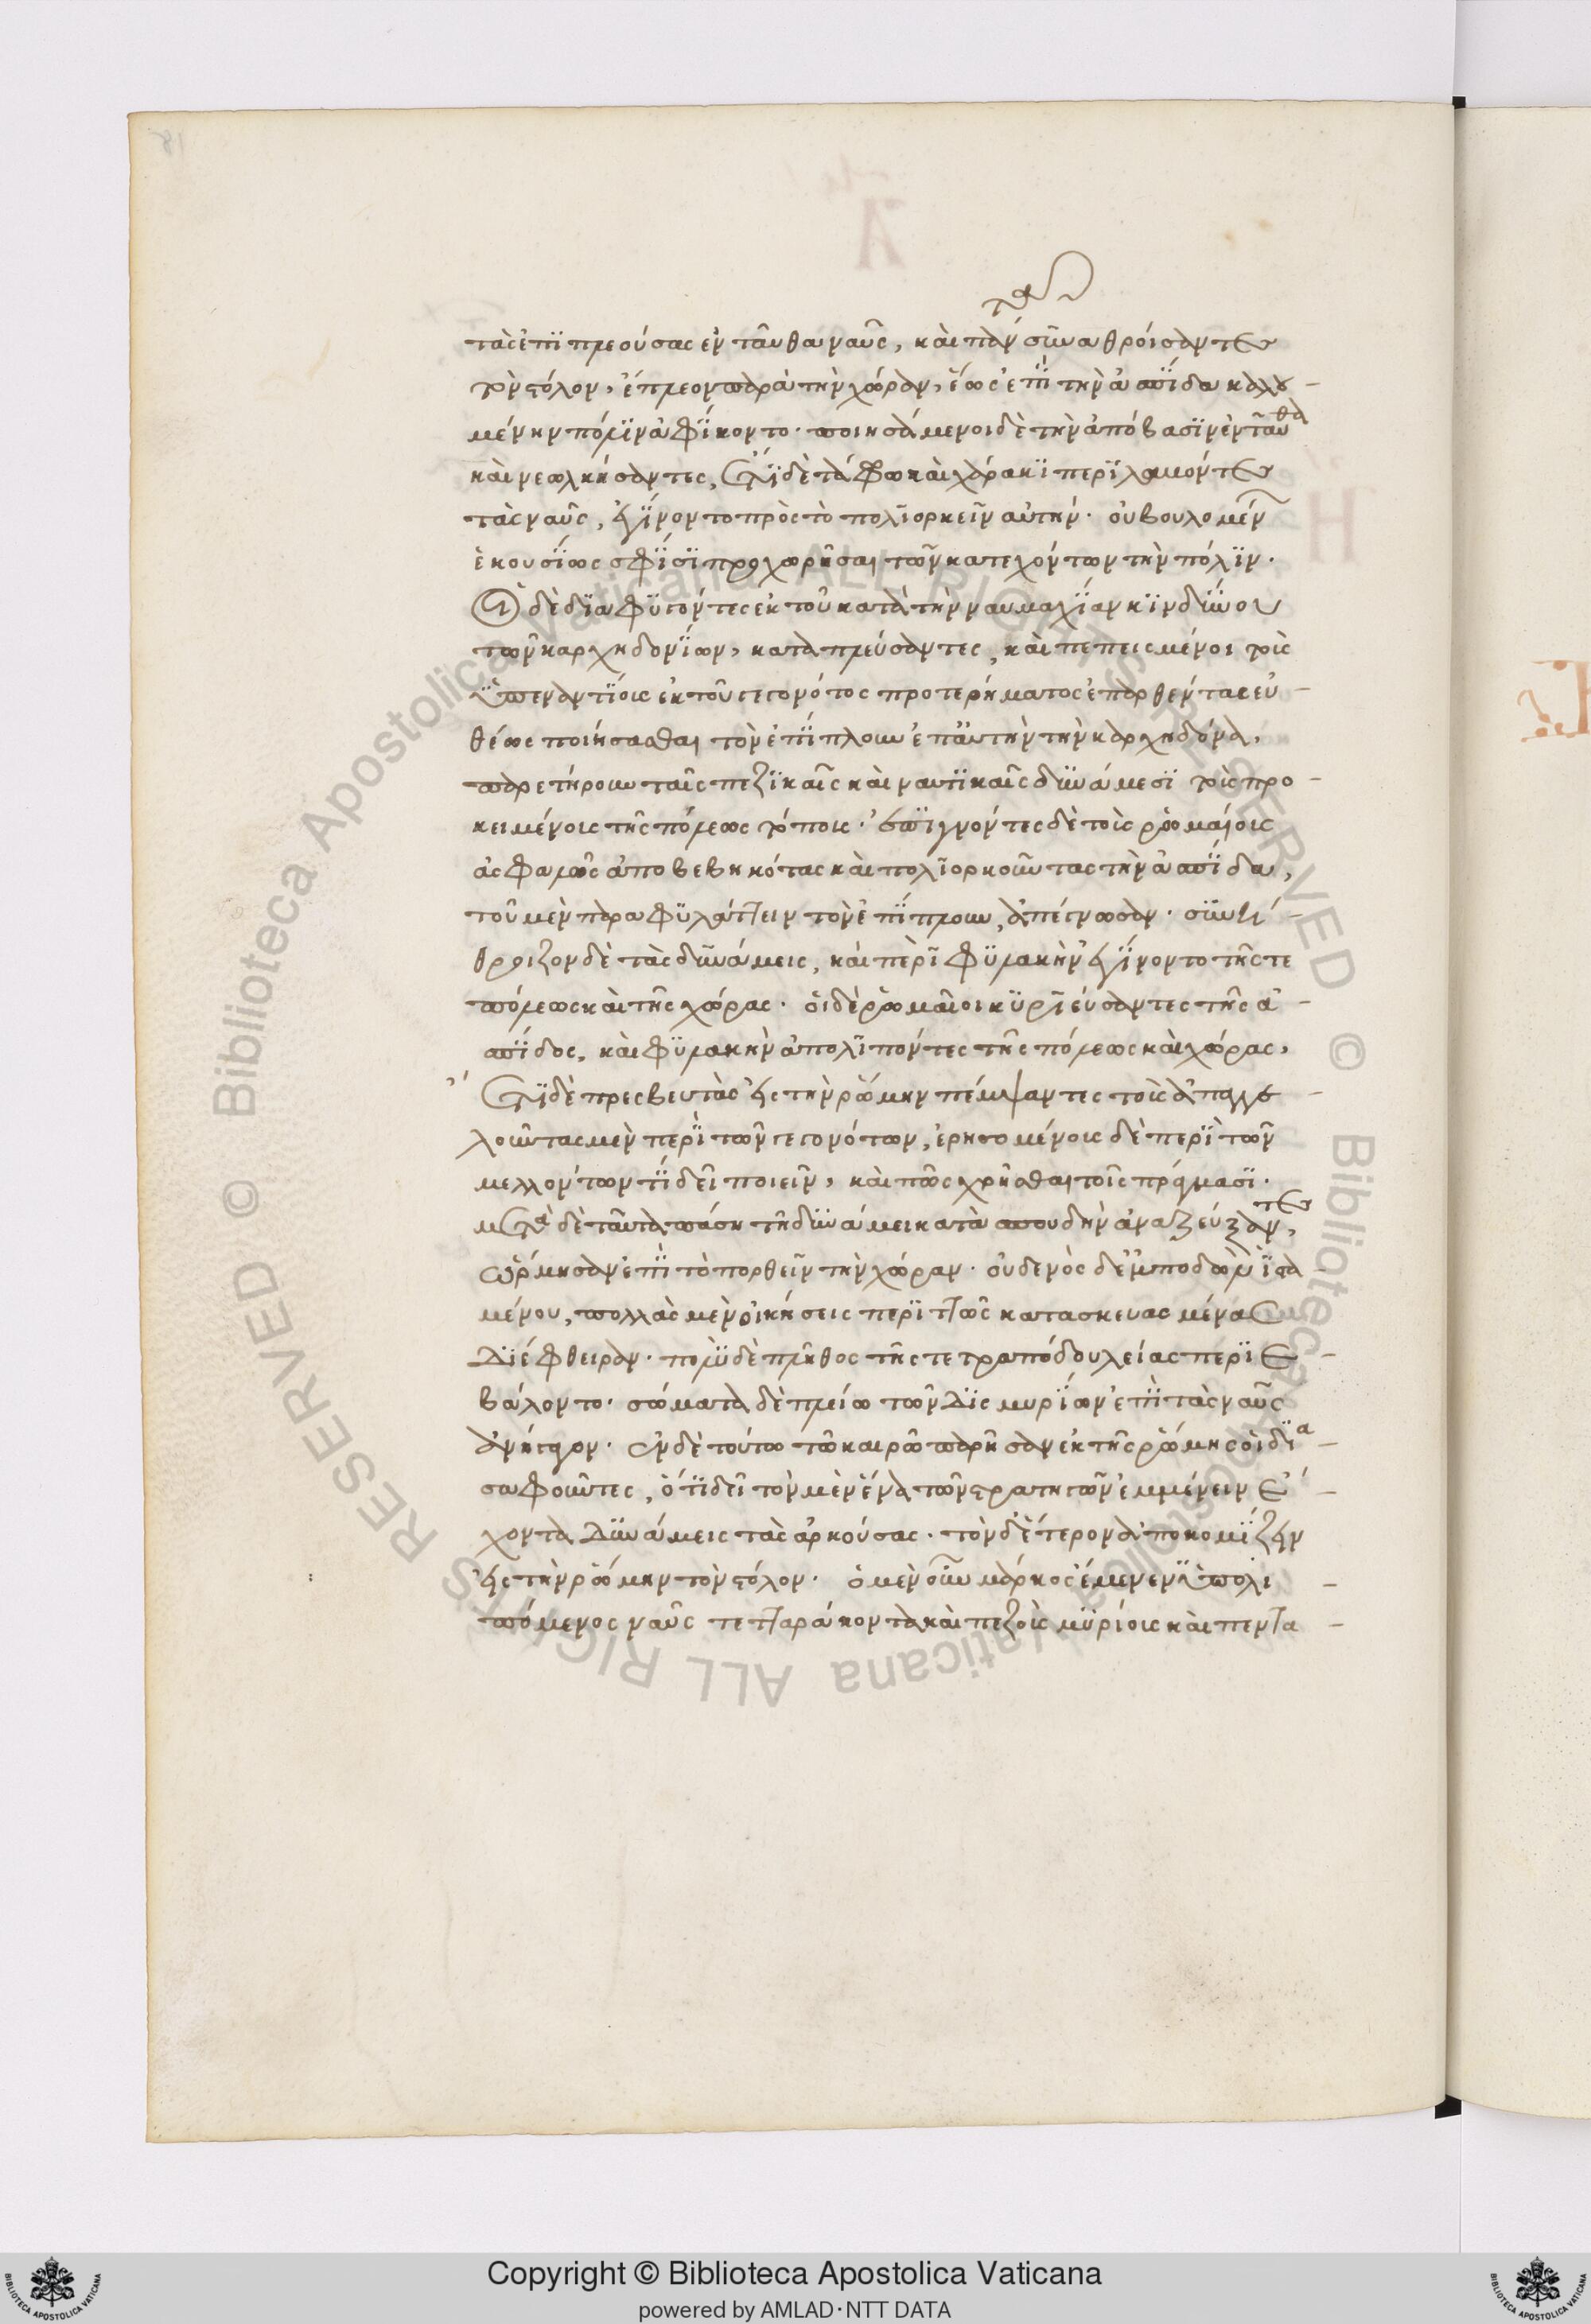 τὰς ἐπιπλεούσας ἐνταῦθα ναῦς, καὶ πάλιν συναθροίσαντες
τὸν στόλον, ἔπλεον παρὰ τὴν χώραν, ἕως ἐπὶ τὴν ἀσπίδα καλου-
μένην πόλιν ἀφίκοντο. ποιησάμενοι δὲ τὴν ἀπόβασιν ἐνταῦθα
καὶ νεωλκήσαντες, ἔτι δὲ τάφρω καὶ χάρακι περιλαβόντες
τὰς ναῦς, ἐγίνοντο πρὸς τὸ πολιορκεῖν αὐτήν. οὐ βουλομέν
ἑκουσίως σφίσι προχωρῆσαι τῶν κατεχόντων τὴν πόλιν.
Οἱ δὲ διαφυγόντες ἐκ τοῦ κατὰ τὴν ναυμαχίαν κινδύνου
τῶν καρχηδονίων, καταπλεύσαντες, καὶ πεπεισμένοι τοὺς
ὑπεναντίους ἐκ τοῦ γεγονότος προτερήματος ἐπαρθέντας εὐ-
θέως ποιήσασθαι τὸν ἐπίπλουν ἐπ' αὐτὴν τὴν καρχηδόνα,
παρετήρουν ταῖς πεζικαῖς καὶ ναυτικαῖς δυνάμεσι τοὺς προ-
κειμένους τῆς πόλεως τόπους. ἐπιγνόντες δὲ τοὺς ῥωμαίους
ἀσφαλῶς ἀποβεβηκότας καὶ πολιορκοῦντας τὴν ἀσπίδα,
τοῦ μὲν παραφυλάττειν τὸν ἐπίπλουν, ἀπέγνωσαν. συνή-
θροιζον δὲ τὰς δυνάμεις, καὶ περὶ φυλακὴν ἐγίνοντο τῆς τε
πόλεως καὶ τῆς χώρας. οἱ δὲ ῥωμαῖοι κυριεύσαντες τῆς ἀ-
σπίδος, καὶ φυλακὴν ἀπολιπόντες τῆς πόλεως καὶ χώρας,
ἔτι δὲ πρεσβευτὰς εἰς τὴν ῥώμην πέμψαντες τοὺς ἀπαγγε-
λοῦντας μὲν περὶ τῶν γεγονότων, ἐρησομένους δὲ περὶ τῶν
μελλόντων τί δεῖ ποιεῖν, καὶ πῶς χρῆσθαι τοῖς πράγμασι.
μετὰ δὲ ταῦτα πάση τῆ δυνάμει κατὰ σπουδὴν ἀναζεύξαντες,
ὥρμησαν ἐπὶ τὸ πορθεῖν τὴν χώραν. οὐδενὸς δ' ἐμποδὼν ἱστα-
μένου, πολλὰς μὲν οἰκήσεις περιττῶς κατασκευασμένας
διέφθειραν. πολὺ δὲ πλῆθος τῆς τετραπόδου λείας περιε-
βάλοντο. σώματα δὲ πλείω τῶν δισμυρίων ἐπὶ τὰς ναῦς
ἀνήγαγον. ἐν δὲ τούτω τῶ καιρῶ παρῆσαν ἐκ τῆς ῥώμης οἱ δια-
σαφοῦντες, ὅτι δεῖ τὸν μὲν ἕνα τῶν στρατηγῶν ἐμμένειν ἔ-
χοντα δυνάμεις τὰς ἀρκούσας. τὸν δ' ἕτερον ἀποκομίζειν
εἰς τὴν ῥώμην τὸν στόλον. ὁ μὲν οὖν μάρκος ἔμενεν ὑπολι-
πόμενος ναῦς τετταράκοντα καὶ πεζοὺς μυρίους καὶ πεντα-
Copyright © Biblioteca Apostolica Vaticana
powered by AMLAD·NTT DATA